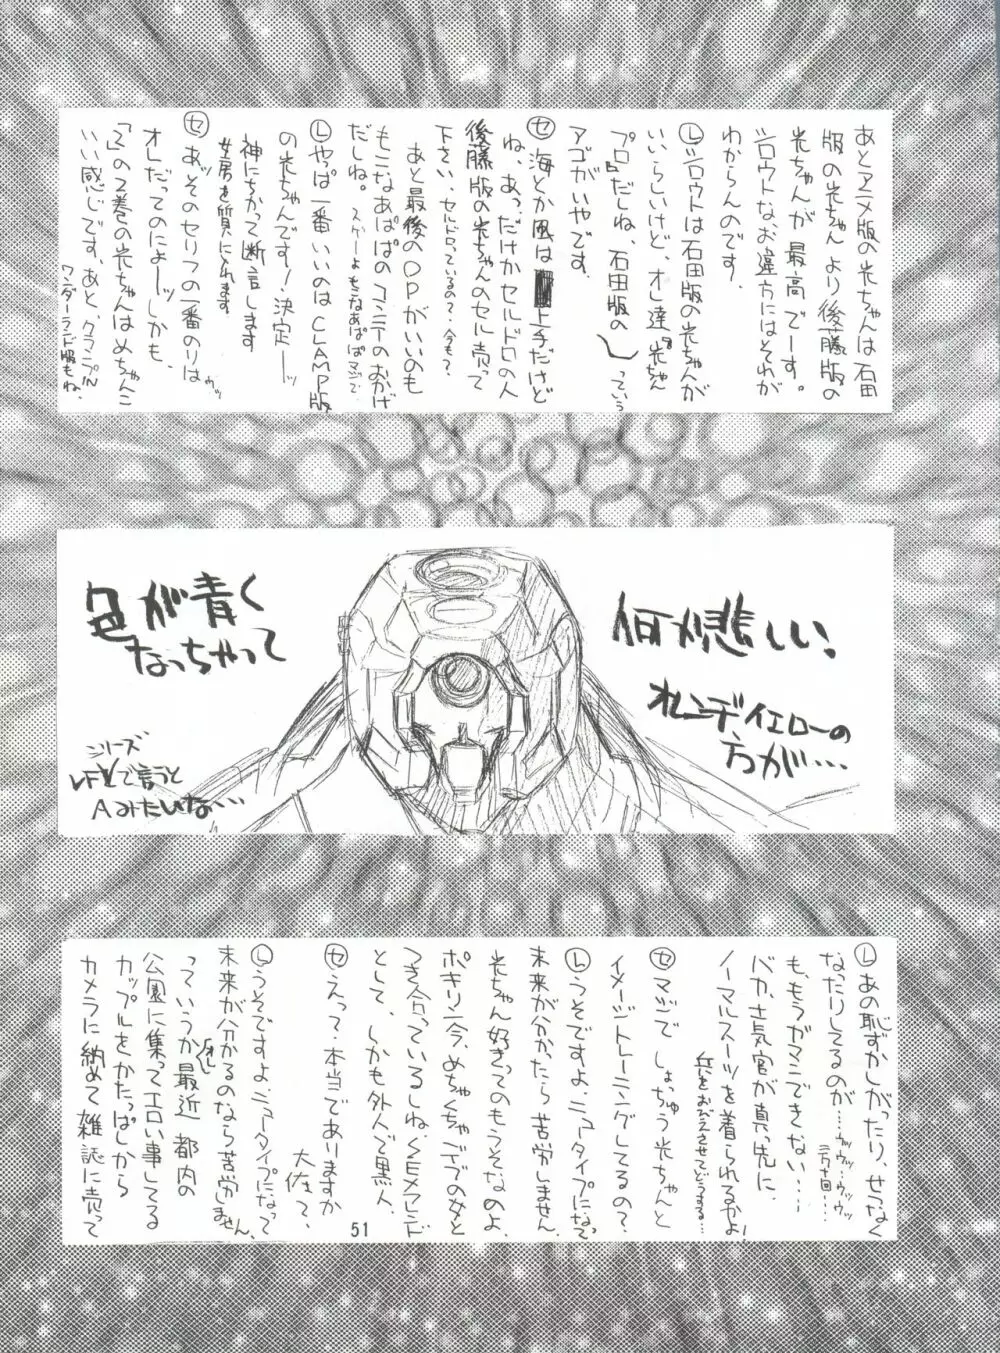 あとアニメ版の光ちゃんは石田
版の光ちゃんより後藤版の
光ちゃんが最高でーす。
シロウトな、お違方にはそれが
わからんのです。
Ⓛシロウトは石田版の光ちゃんが
いいらしいけど、オレ達『光ちゃん
プロ』だしね、石田版の
っていう
アゴがいやです。
セ海とか風は上手だけど
ね、あっ、だけかセルドロの人
後藤版の光ちゃんのセル売って
下さい、セルドロっているの?今も?
あと最後のOPがいいのも
もこなあぱぱのコンテのおかげ
だしね。スゲーよもこなあぱぱマジで
Ⓛやっぱ一番いいのはCLAMP版
の光ちゃんです!決定ーッ
神にちかって断言します
女房を質に入れます
セあッそのセリフの一番のりは
オレだってのによーッしかも、
「2」の2巻の光ちゃんはめちゃんこ
いい感じです、あと、クランプ
ワンダーランド版もね、
何か悲しい!
オレンヂ、イエローの
方が…
色が青く
なっちゃって
シリーズ
で言うと
Aみたいな…
Ⓛあの恥ずかしがったり、せつなく
なったりしてるのが…ウッウッウッウッ
も、もうガマンできない…
バカ、士気官が真っ先に
ノーマルスーツを着られるかよ!
兵をおびえさせてどうする…
セマジでしょっちゅう光ちゃんと
イメージトレーニングしてるの?
Ⓛうそですよ、ニュータイプになって
未来が分かったら苦労しません
光ちゃん好きってのもうそなのよ、
ポキリン今、めちゃくちゃデブの女と
つき合っているしね、SEXフレンド
として、しかも外人で黒人、
セえって・本当でありますか
大佐って、
Ⓛうそですよ、ニュータイプになって
未来が分かるのなら苦労しません、
っていうか最近都内の
公園に集ってエロい事してる
カップルをかたっぱしから
カメラに納めて雑誌に売って
51